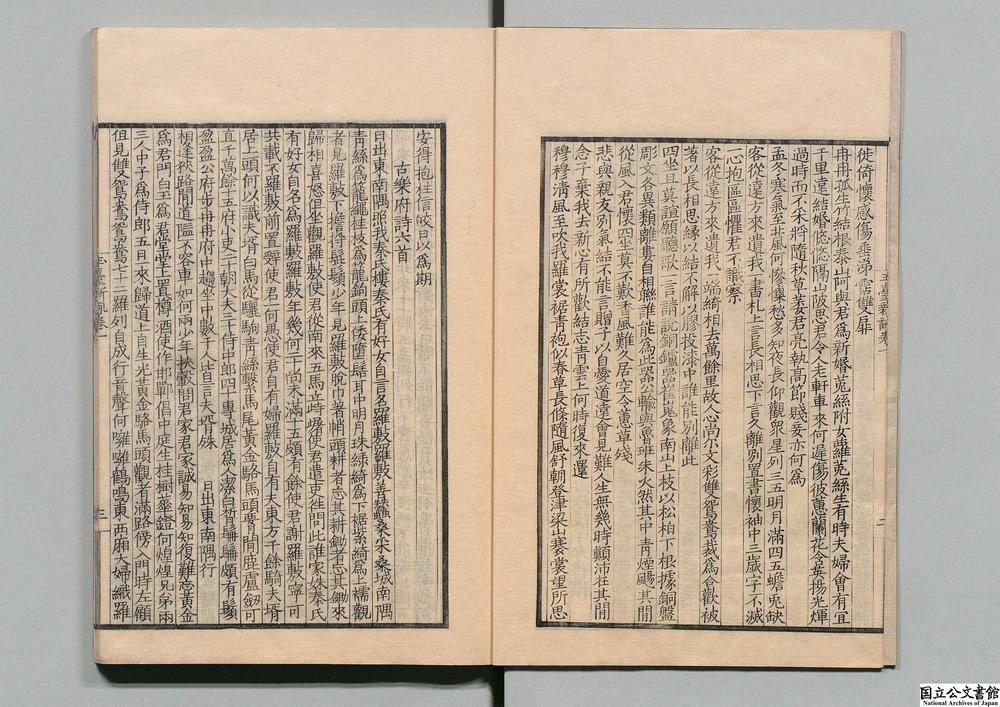 玉臺新詠卷一
二
徙倚懷感傷垂涕霑雙扉
冉冉孤生竹結根泰山阿與君為新婚莬絲附女蘿莬絲生有時夫婦會有宜
千里遠結婚悠悠隔山陂思君令人老軒車來何遲傷彼蕙蘭花含英揚光輝
過時而不采將隨秋草萎君亮執高節賤妾亦何為
孟冬寒氣至北風何慘慄愁多知夜長仰觀衆星列三五明月滿四五蟾兔缺
客從遠方來遺我一書札上言長相思下言久離別置書懷袖中三歲字不滅
一心抱區區懼君不識察
客從遠方來遺我一端綺相去萬餘里故人心尚尓文彩雙鴛鴦裁為合歡被
著以長相思緣以結不解以膠投漆中誰能別離此
四坐且莫諠願聽歌一言請說銅鑪器崔嵬象南山上枝以松柏下根據銅盤
彫文各異類離婁自相聯誰能為此器公輸與魯班朱火然其中青煙颺其間
從風入君懷四坐莫不歎香風難久居空令蕙草殘
悲與親友別氣結不能言贈子以自愛道遠會見難人生無幾時顛沛在其間
念子棄我去新心有所歡結志青雲上何時復來還
穆穆清風至吹我羅裳裾青袍似春草長條隨風舒朝登津梁山褰裳望所思
安得抱柱信皎日以為期
古樂府詩六首
日出東南隅照我秦氏樓秦氏有好女自言名羅敷羅敷善蠶桑采桑城南隅
青絲為籠繩桂枝為籠鉤頭上倭墮髻耳中明月珠綠綺為下裾紫綺為上襦觀
者見羅敷下擔捋髭鬚少年見羅敷脫巾著帩頭耕者忘其耕鋤者忘其鋤來
歸相喜怒但坐觀羅敷使君從南來五馬立踟躕使君遣吏往問此誰家姝秦氏
有好女自名為羅敷羅敷年幾何二十尚未滿十五頗有餘使君謝羅敷寧可
共載不羅敷前置辭使君一何愚使君自有婦羅敷自有夫東方千餘騎夫壻
居上頭何以識夫壻白馬從驪駒青絲繫馬尾黃金絡馬頭間鹿盧劒可
直千萬餘十五府小吏二十朝大夫三十侍中郎四十專城居為人潔白皙鬑鬑頗有鬚
盈盈公府步冉冉府中趨坐中數千人皆言夫壻殊 日出東南隅行
相逢狹路間道隘不容車如何兩少年挾轂問君家君家誠易知易知復難忘黃金
為君門白玉為君堂堂上置樽酒使作邯鄲倡中庭生桂樹華鐙何煌煌兄弟兩
三人中子為侍郎五日一來歸道上自生光黃金絡馬頭觀者滿路傍入門時左顧
但見雙鴛鴦鴛鴦七十二羅列自成行音聲何噰噰鶴鳴東西廂大婦織羅
玉臺新詠卷一
三
国立公文書館
National Archives of Japan